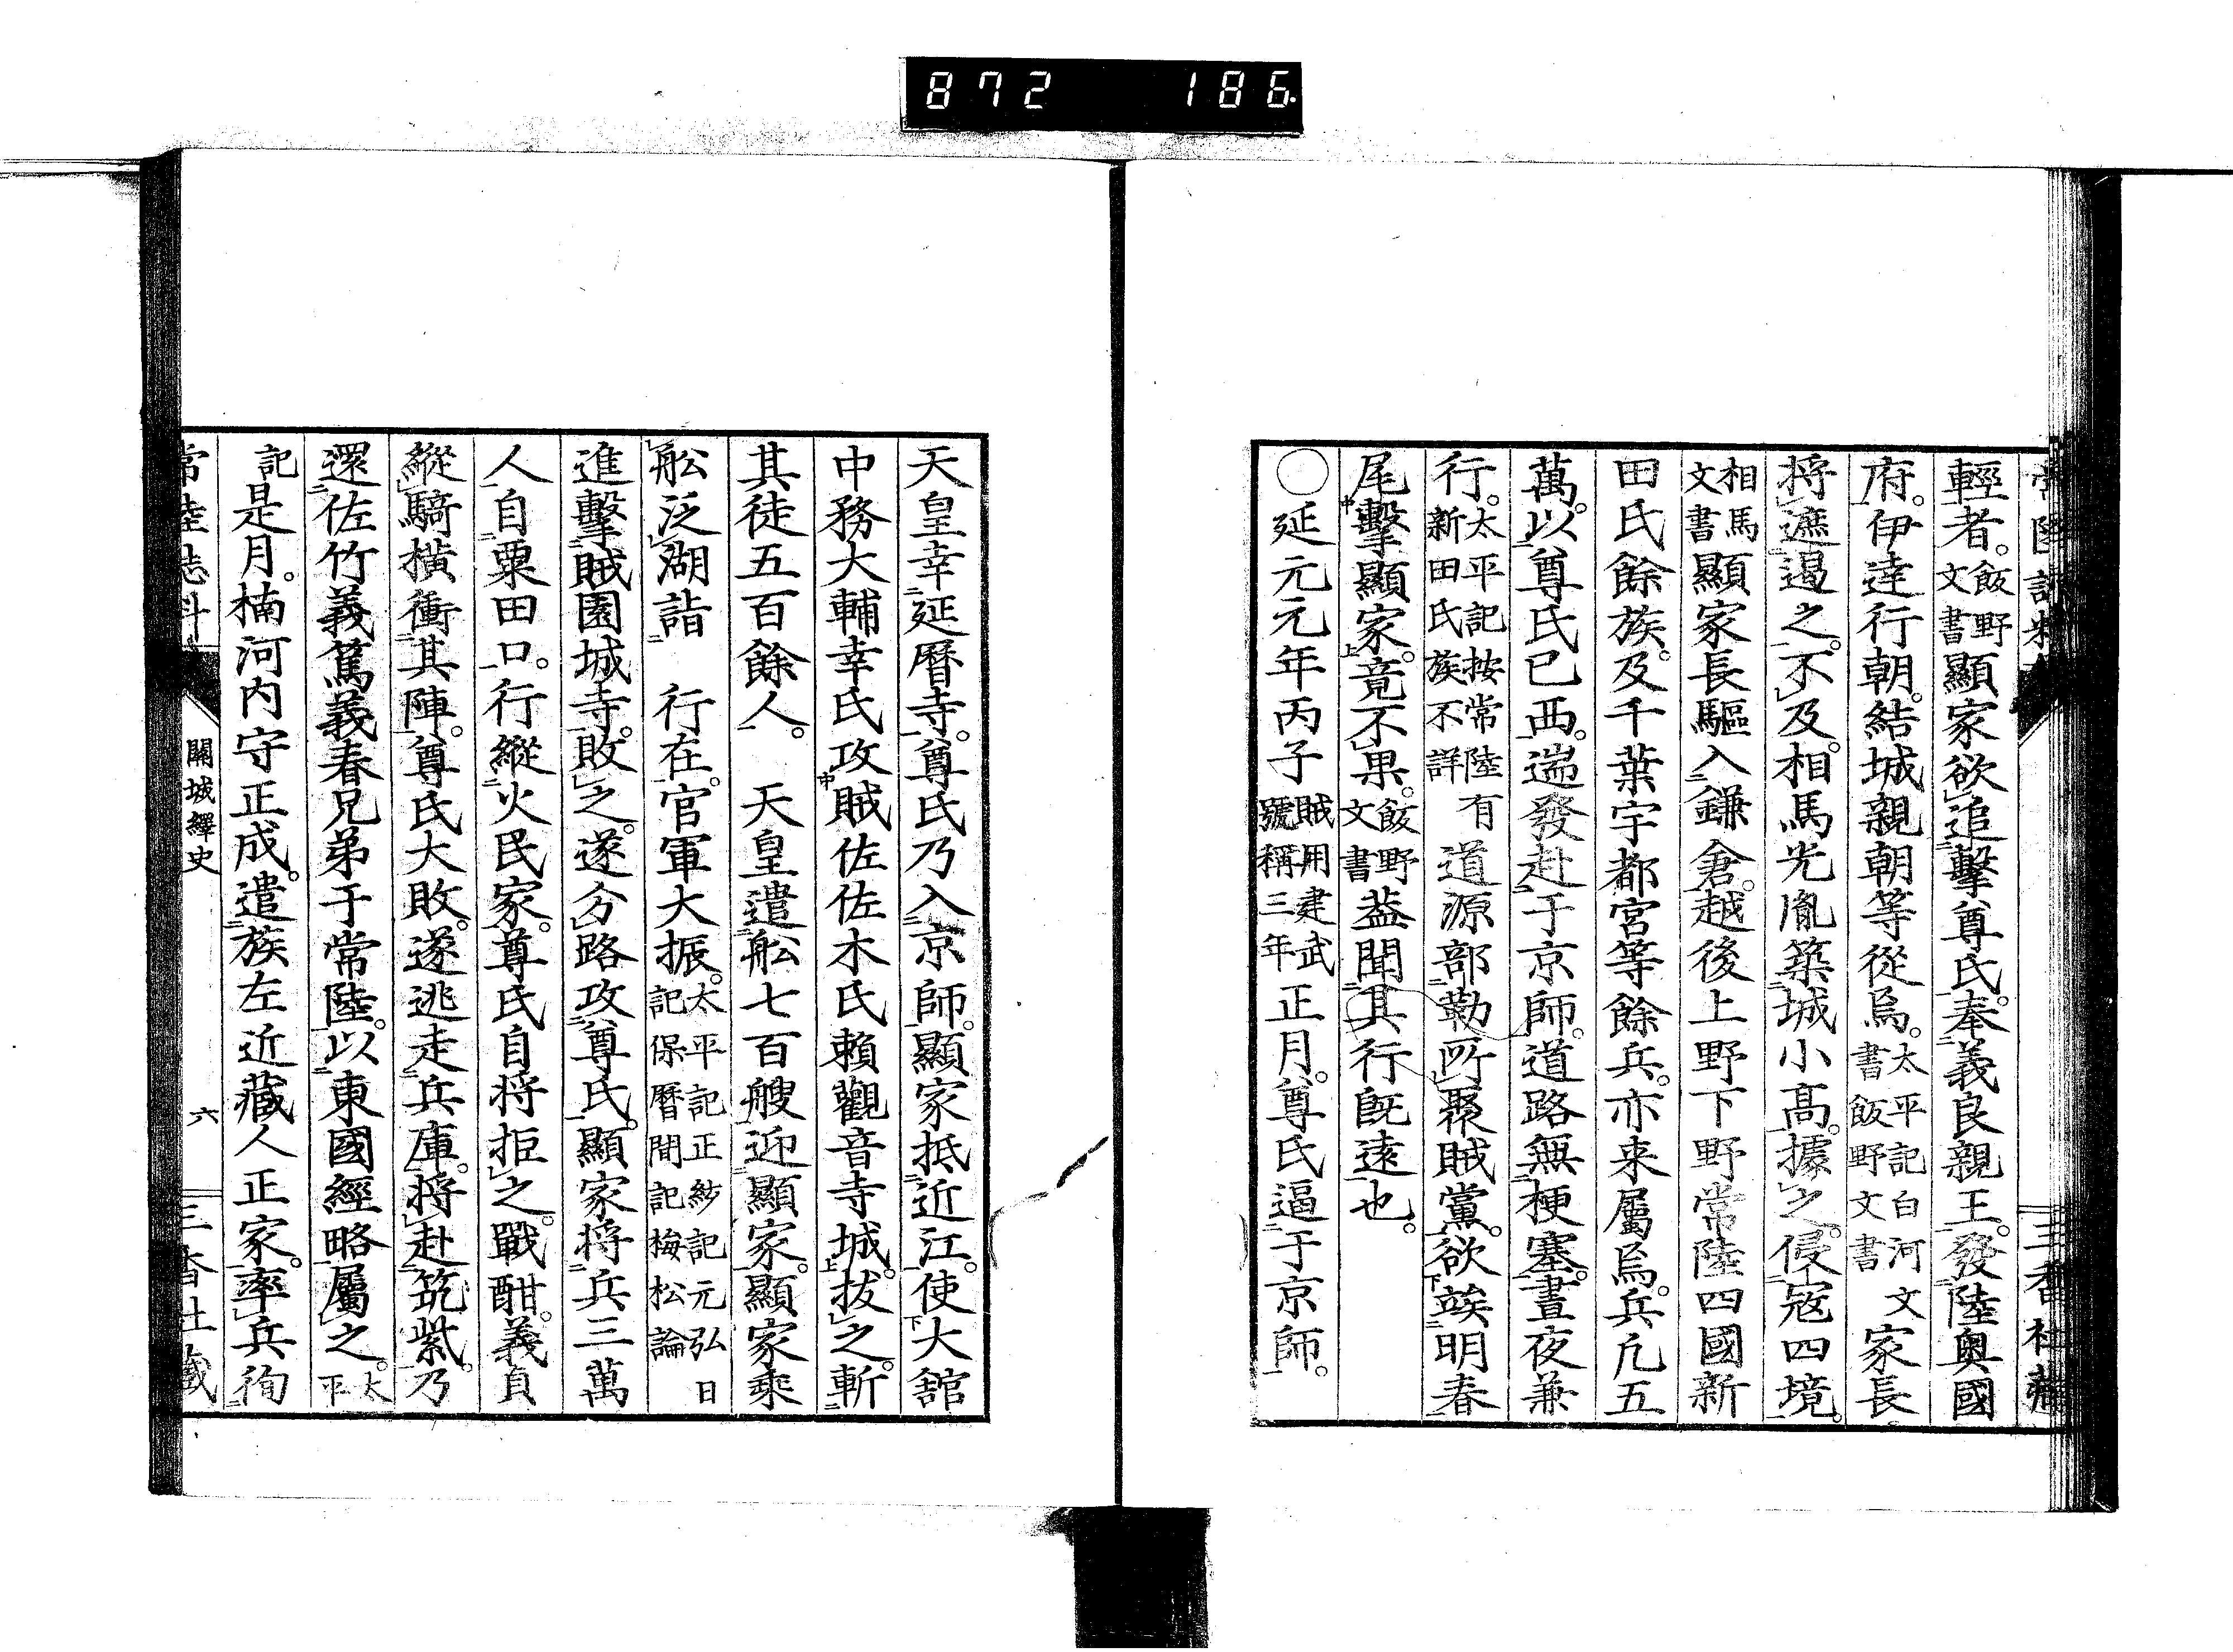 872 186.
輕者。飯野文書顯家欲追擊尊氏。奉義良親王。發陸奧國
府。伊達行朝。結城親朝等從焉。太平記白河文書飯野文書家長
將遮遏之。不及。相馬光胤築城小高。據之。侵冦四境。
相馬文書顯家長驅入鎌倉。越後上野下野常陸四國新
田氏餘族。及千葉宇都宮等餘兵。亦来屬焉。兵凢五
萬。以尊氏已西。遄發赴于京師。道路無梗塞。晝夜兼
行。太平記按常陸有新田氏族不詳道源部勒所聚賊黨。欲竢明春
尾擊顯家。竟不果。飯野文書葢聞其行旣遠也。
〇延元元年丙子賊用建武號稱三年正月。尊氏逼于京師。
天皇幸延曆寺。尊氏乃入京師。顯家抵近江。使大舘
中務大輔幸氏攻賊佐佐木氏賴觀音寺城。拔之。斬
其徒五百餘人。 天皇遣舩七百艘迎顯家。顯家乘
舩泛湖詣 行在。官軍大振。太平記正紗記元弘日記保曆間記梅松論
進擊賊園城寺。敗之。遂分路攻尊氏。顯家將兵三萬
人自粟田口。行縱火民家。尊氏自将拒之。戰酣。義貞
縱騎橫衝其陣。尊氏大敗。遂逃走兵庫。将赴筑紫。乃
還佐竹義篤義春兄弟于常陸。以東國經略屬之。太平
記是月。楠河内守正成。遣族左近藏人正家。率兵徇
常陸志料
關城繹史
六
三香社藏